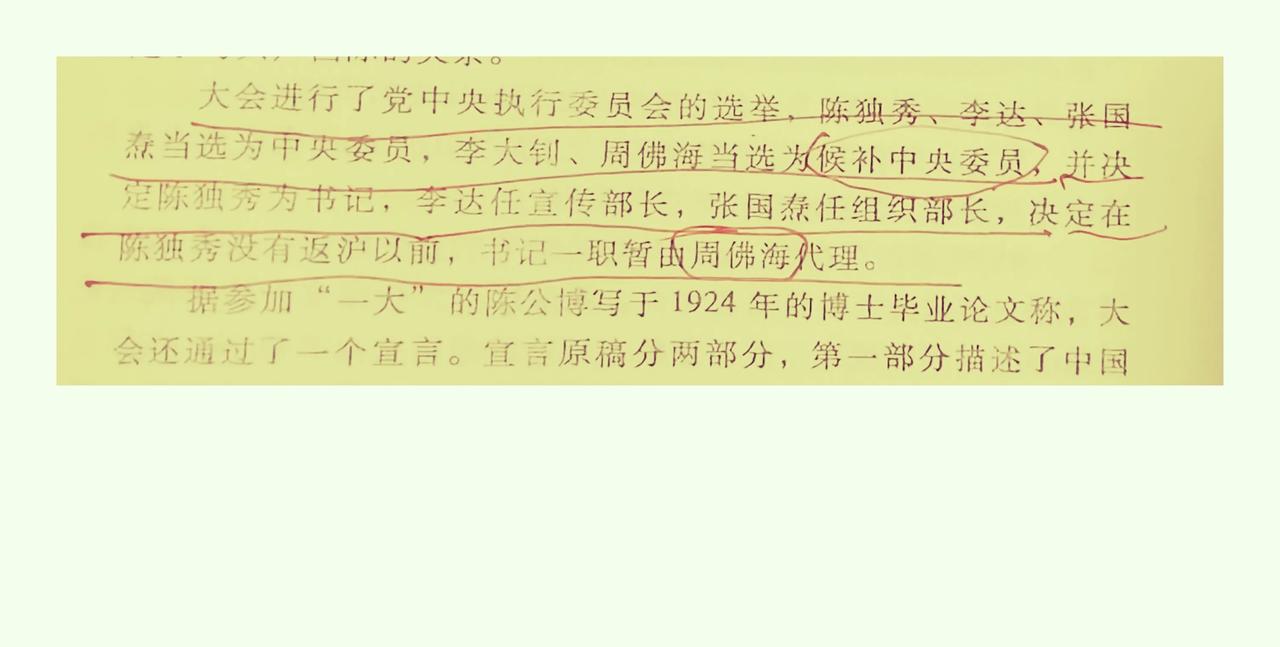 大会进行了党中央执行委员会的选举，陈独秀、李达、张国
焘当选为中央委员，李大钊、周佛海当选为候补中央委员，并决
定陈独秀为书记，李达任宣传部长，张国焘任组织部长，决定在
陈独秀没有返沪以前，书记一职暂由周佛海代理。
据参加“一大”的陈公博写于1924年的博士毕业论文称，大
会还通过了一个宣言。宣言原稿分两部分，第一部分描述了中国